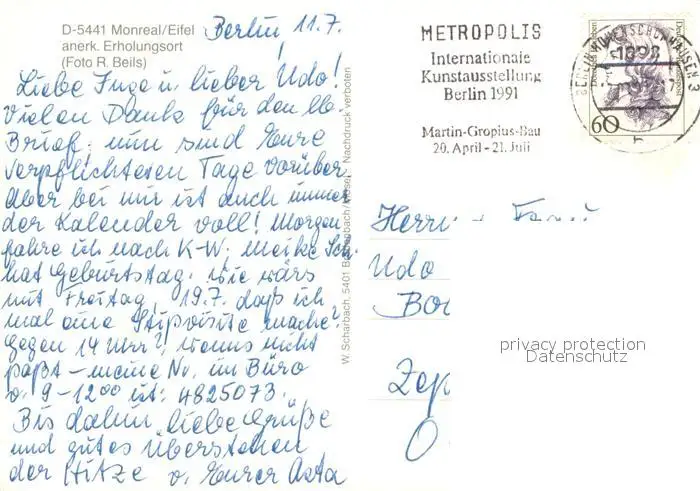 D-5441 Monreal/Eifel
anerk. Erholungsort
(Foto R. Beils)
Berlin 11.7.
Liebe Inge u. lieber Udo!
Vielen Dank für den lb.
Brief, nun sind Eure
verpflichteten Tage vorüber
Aber bei mir ist auch immer
der Kalender voll! Morgen
fahre ich nach K-W, Meike Sch.
hat Geburtstag. Wie wärs
mit Freitag, 19.7. daß ich
mal eine Stipvisite mache?
gegen 14 Uhr?, wenns nicht
paßt - meine Nr. im Büro
v. 9-12⁰⁰ ist: 4825073.
Bis dahin liebe Grüße
und gutes Überstehen
der Hitze v. Eurer Asta
W. Scharbach, 5401 Nachdruck verboten
METROPOLIS
Internationale
Kunstausstellung
Berlin 1991
Martin-Gropius-Bau
20. April - 21. Juli
BERLIN HOHENSCHÖNHAUSEN 3
1093
h
60
Herrn
Udo
Zep
O
privacy protection
Datenschutz